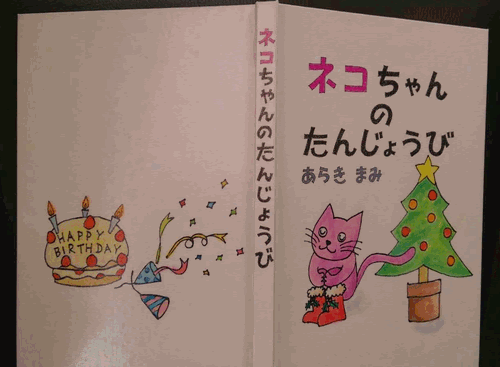 ネコちゃん
の
たんじょうび
あらき まみ
ネコちゃんのたんじょうび
HAPPY
BIRTHDAY